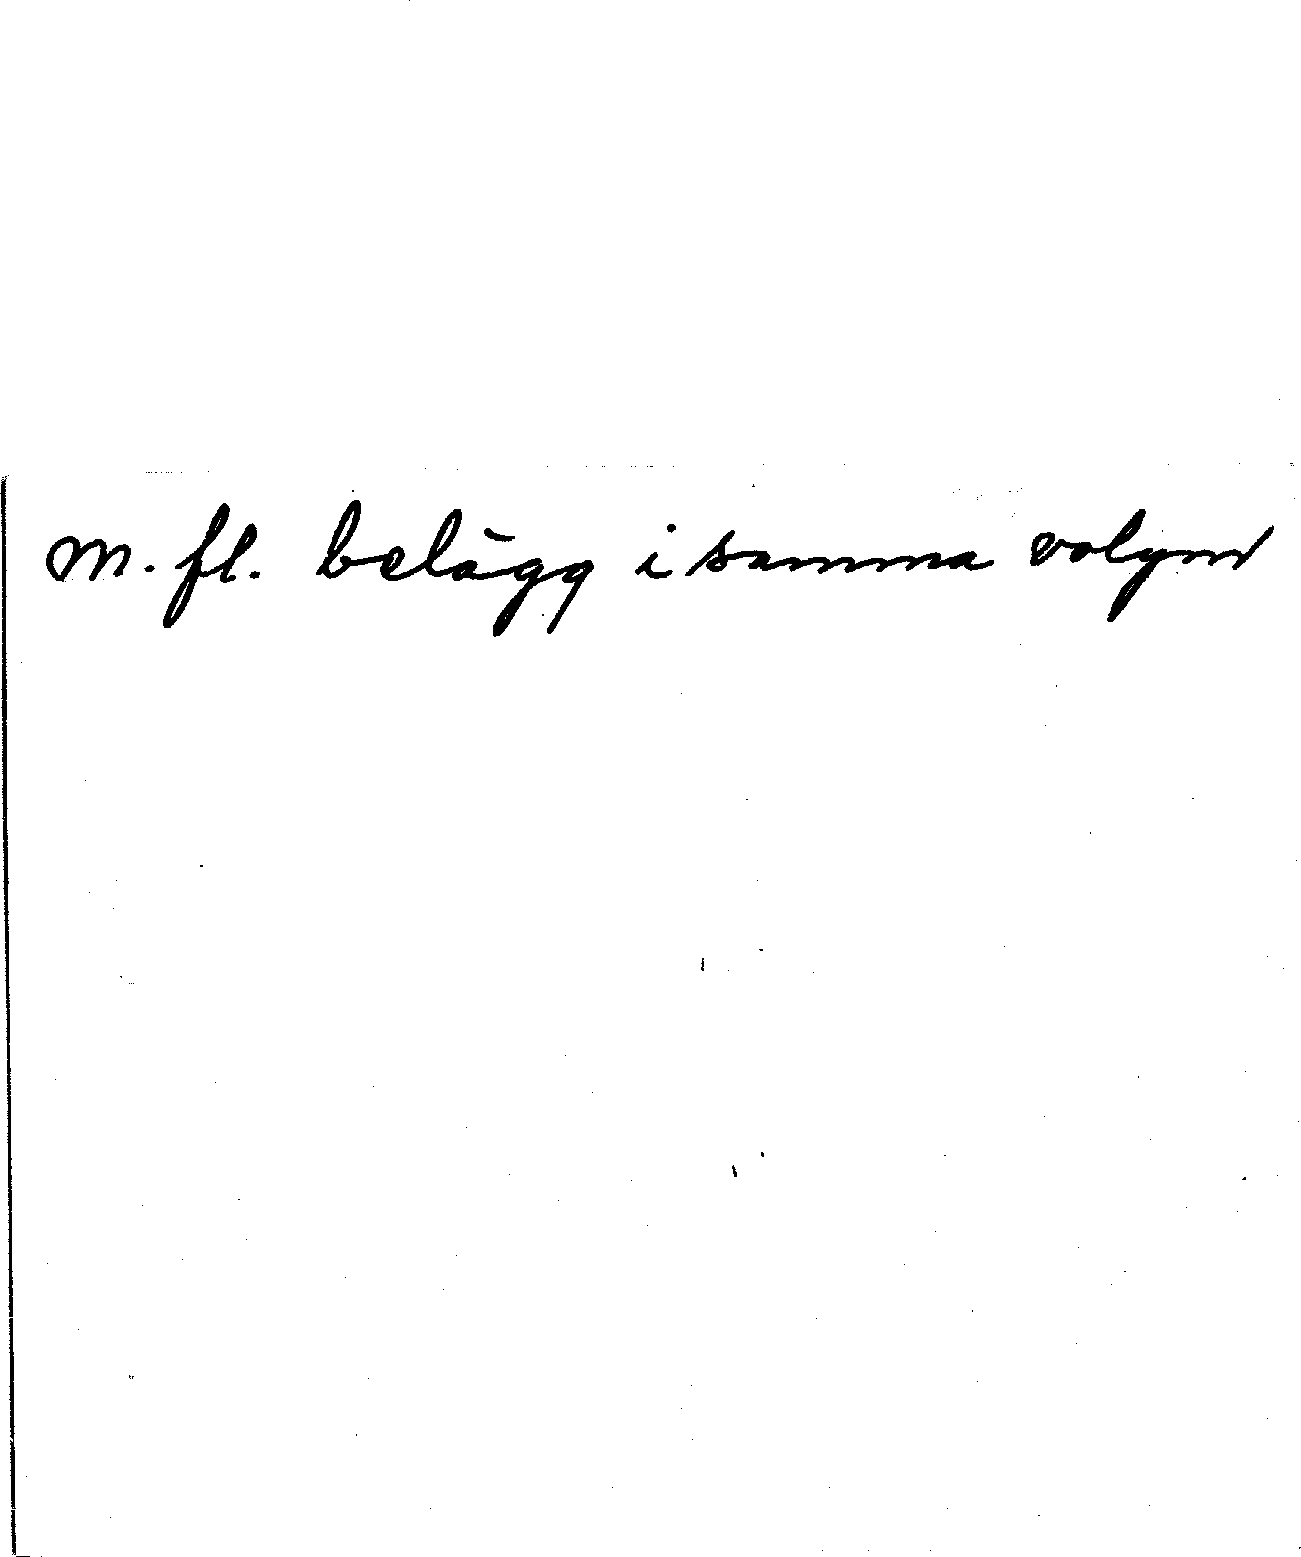 m. fl. belägg i samma volym